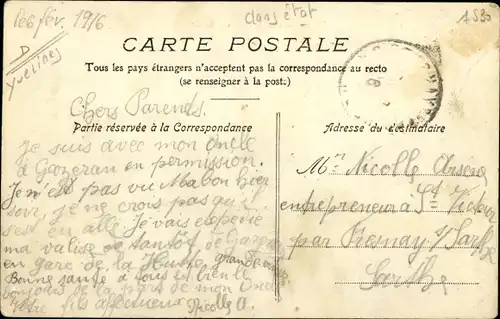 le 6 fév. 1916
dans état
D
Yvelines
CARTE POSTALE
Tous les pays étrangers n'acceptent pas la correspondance au recto
(se renseigner à la poste)
Chers Parents.
Partie réservée à la Correspondance
Adresse du destinataire
Je suis avec mon Oncle
à Gazeran en permission.
Je n'est pas vu Mabon hier
soir, je ne crois pas qu'il
s'est en allé Je vais
ma valise de Gazeran
en gare de la Hutte grande vitesse
Bonne santé à tous
bonjours de la part de mon Oncle
Votre fils affectueux Nicolle A.
Mr Nicolle Arsène
entrepreneur à St Victeur
par Fresnay s/ Sarthe
Sarthe